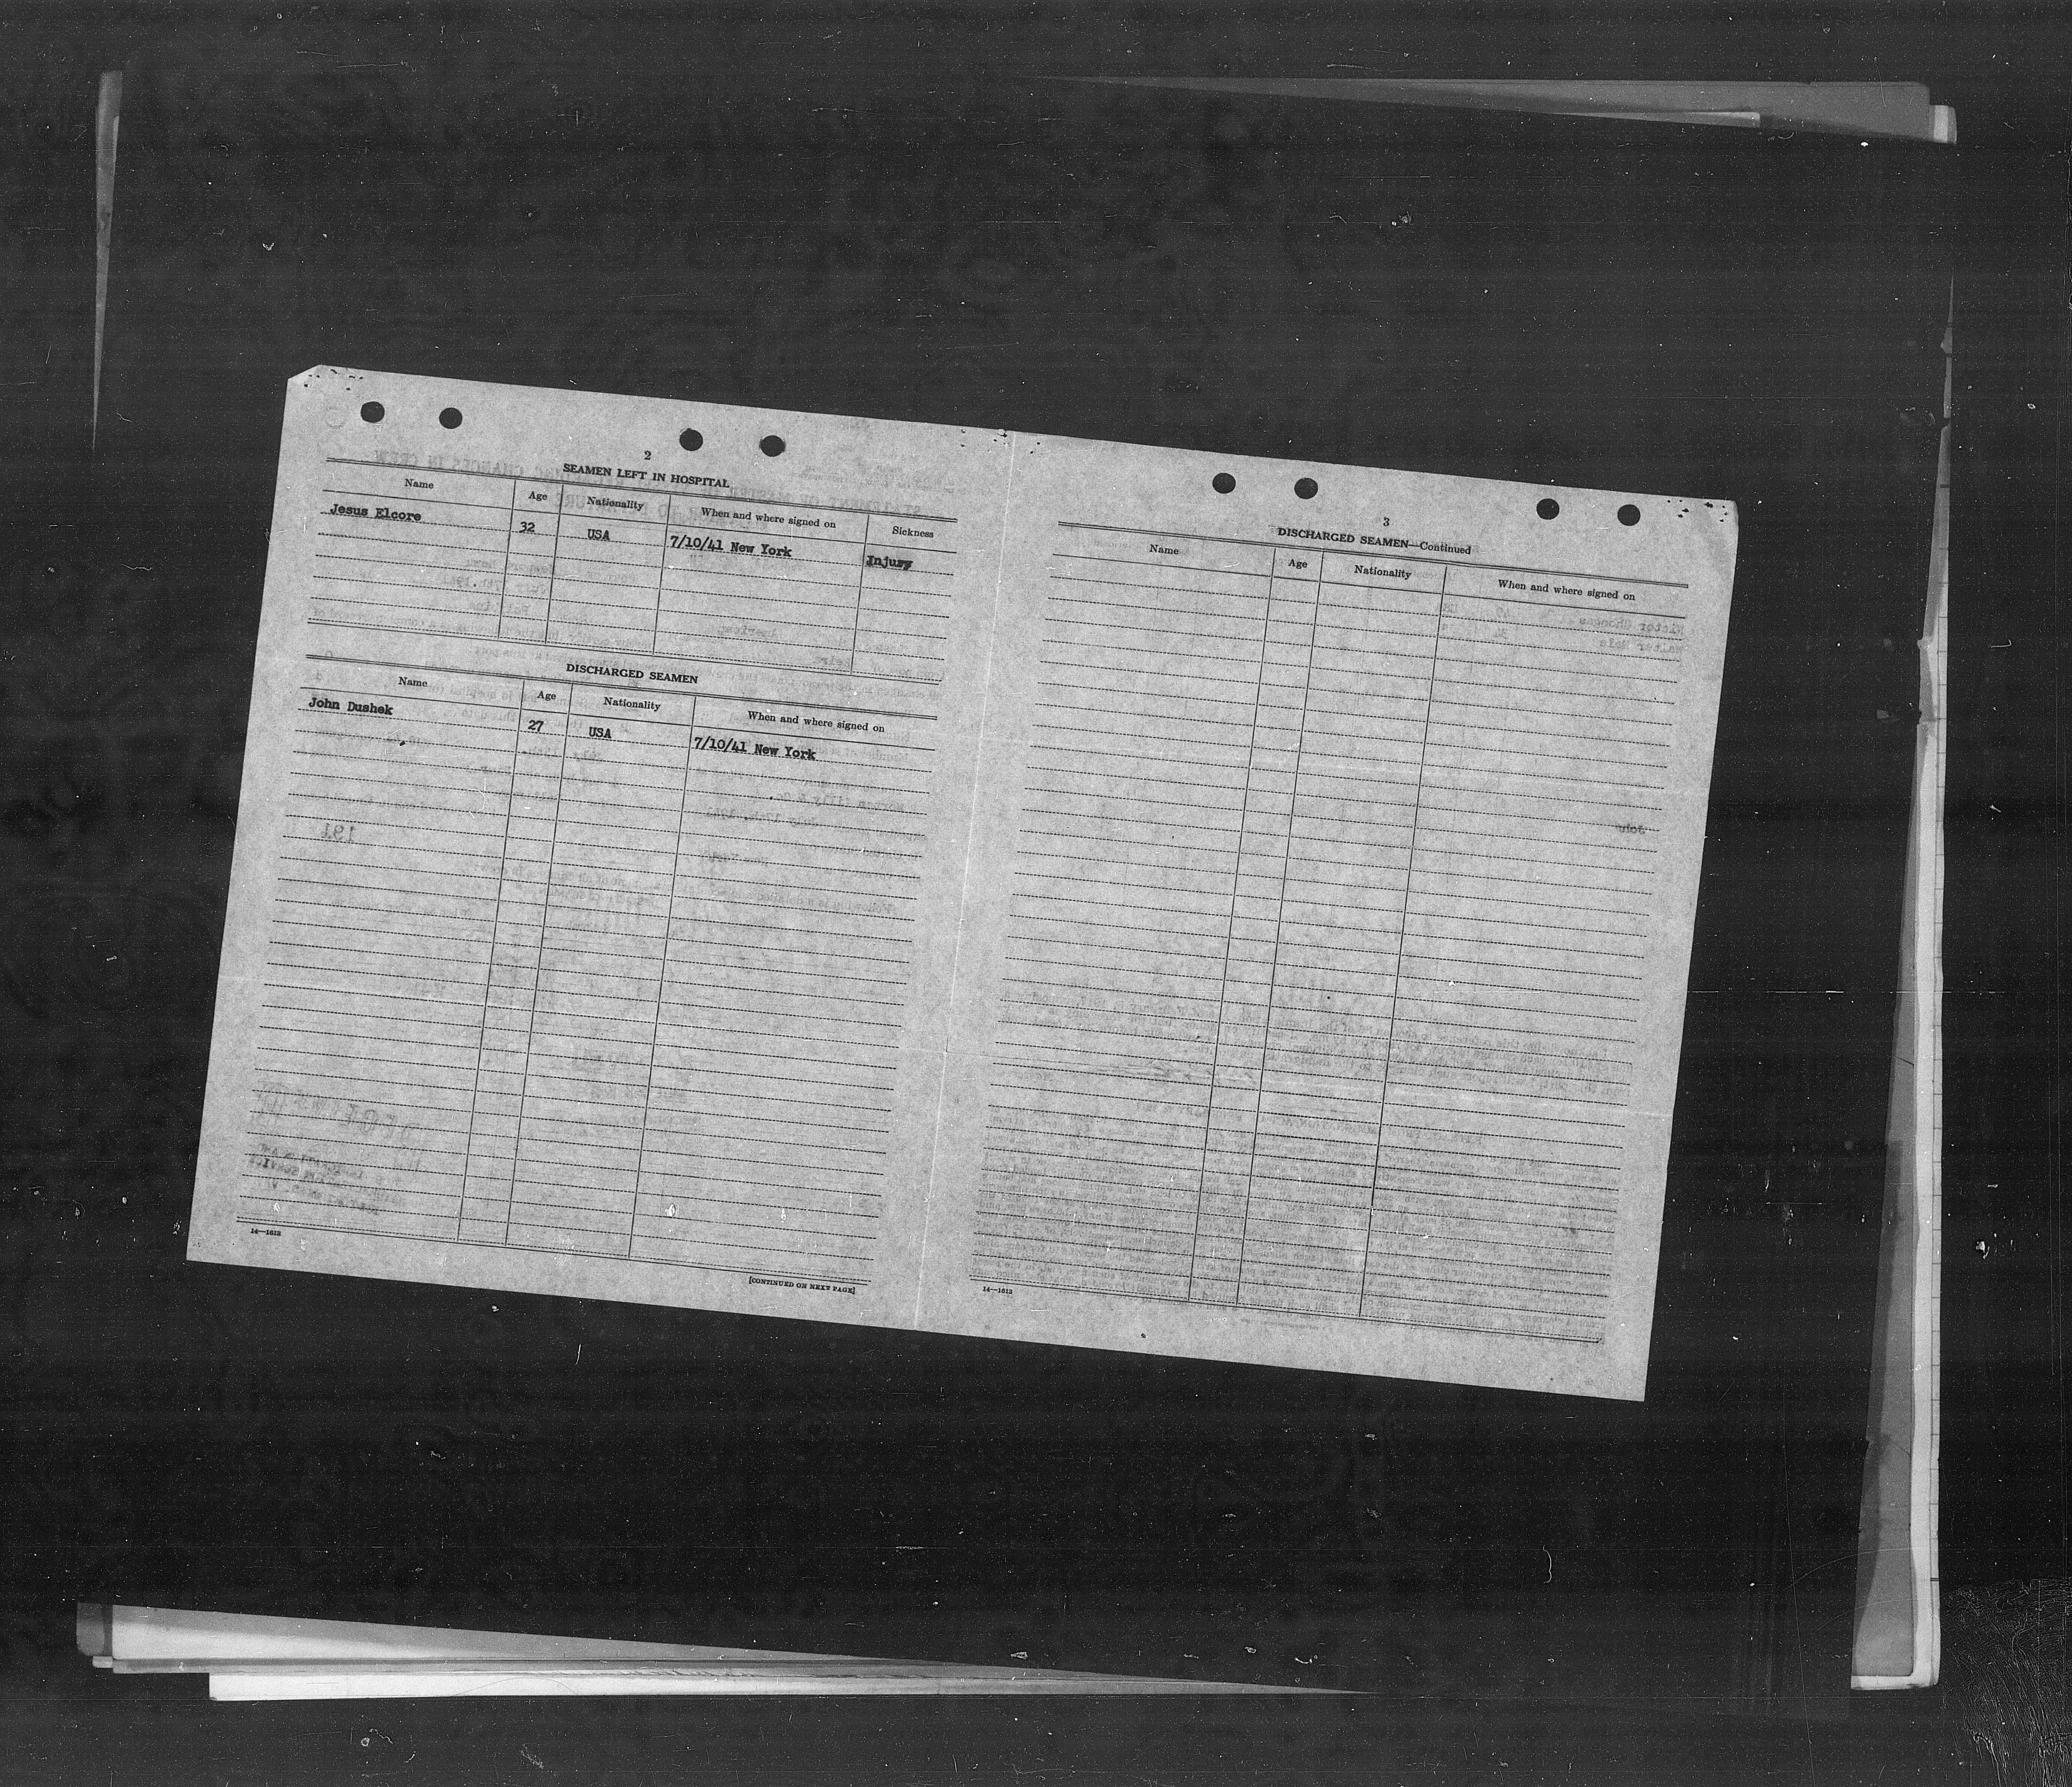 2
SEAMEN LEFT IN HOSPITAL
Name Age Nationality When and where signed on Sickness
Jesus Elcore 32 USA 7/10/41 New York Injury
DISCHARGED SEAMEN
Name Age Nationality When and where signed on
John Dushek 27 USA 7/10/41 New York
14—1613
[CONTINUED ON NEXT PAGE]
3
DISCHARGED SEAMEN—Continued
Name Age Nationality When and where signed on
14—1613